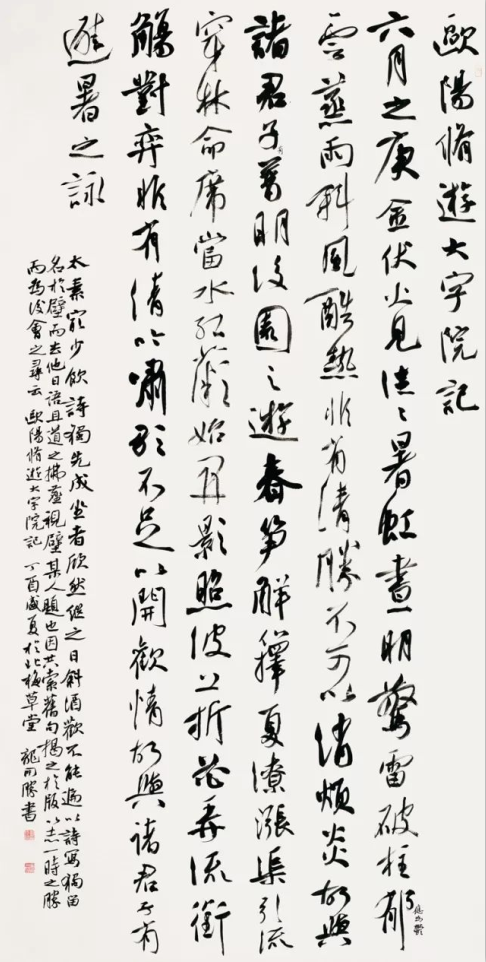 歐陽脩遊大字院記
六月之庚金伏火見往〻暑虹晝明驚雷破柱郁
雲蒸雨斜風酷熱非有清勝不可以清煩炎故與
諸君子普明後園之遊春笋解籜夏潦漲渠引流
穿林命席當水紅薇始開影照波上折花弄流銜
觴對弈非有清吟嘯歌不足以開歡情故與諸君子有
避暑之詠
太素最少飲詩獨先成坐者欣然繼之日斜酒歡不能遍以詩寫獨留
名於壁而去他日語且道之拂塵視壁某人題也因共索舊句揭之於版以志一時之勝
而為後會之尋云 歐陽脩遊大字院記 丁酉盛夏於北梅草堂 龍開勝書